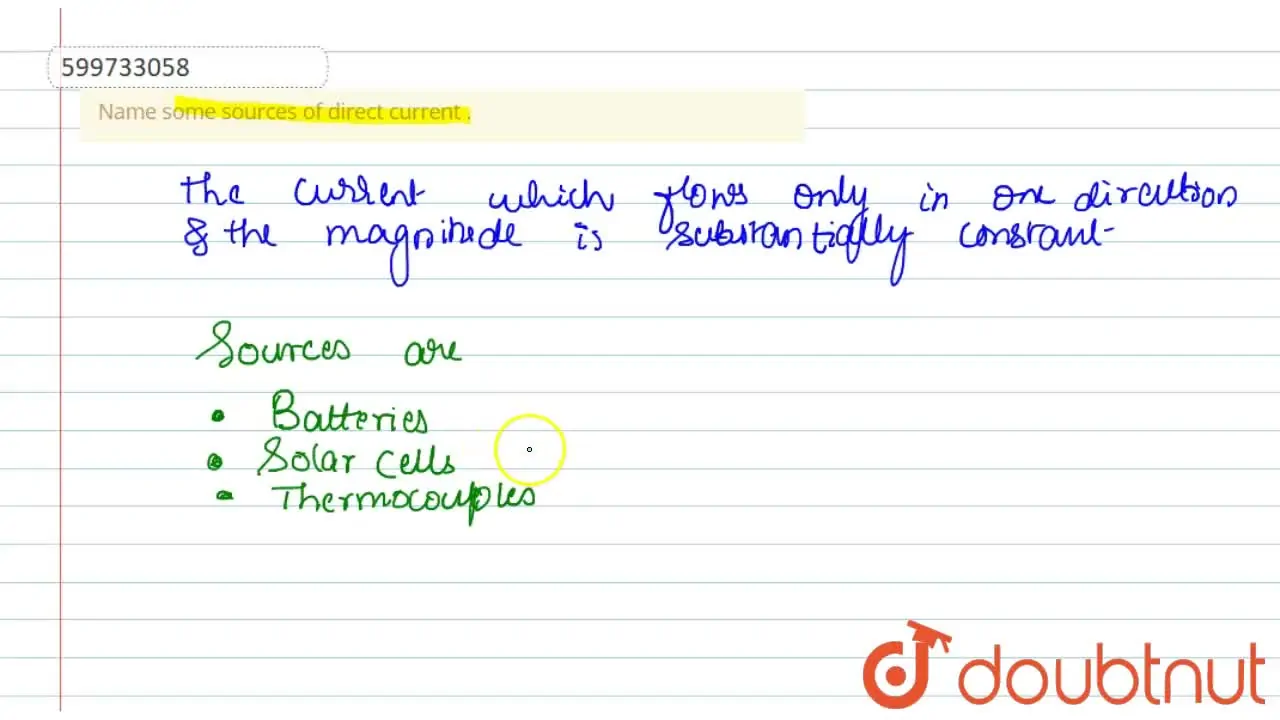 599733058
Name some sources of direct current .
The current which flows only in one direction
& the magnitude is substantially constant
Sources are
• Batteries
• Solar cells
• Thermocouples
doubtnut